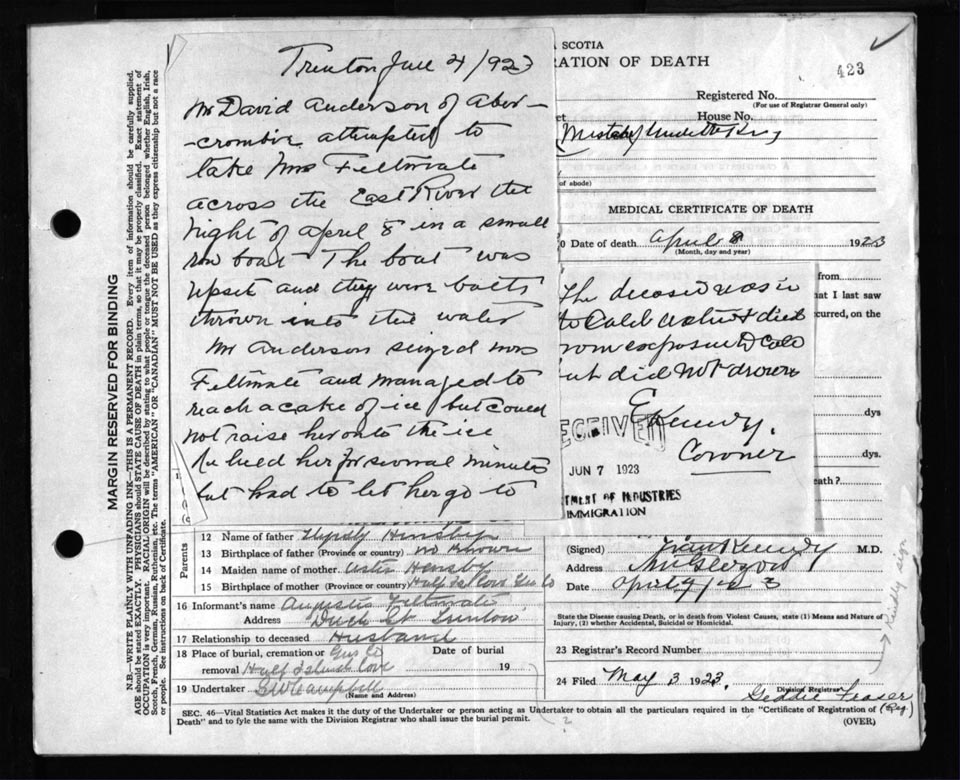 Trenton June 4/1923
Mr David Anderson of Aber-
-crombie attempted to
take Mrs Feltmate
across the East River the
night of April 8 in a small
row boat The boat was
upset and they were both
thrown into the water
Mr Anderson seized Mrs
Feltmate and managed to
reach a cake of ice but could
not raise her onto the ice
He held her for several minutes
but had to let her go to
The deceased was in
to Cold Water & died
from exposure to Cold
but did not drown
E Kennedy.
Coroner
RECEIVED
JUN 7 1923
TMENT OF INDUSTRIES
IMMIGRATION
A SCOTIA
RATION OF DEATH
423
Registered No.
(For use of Registrar General only)
et House No.
of abode)
MEDICAL CERTIFICATE OF DEATH
0 Date of death April 8 1923
(Month, day and year)
from
at I last saw
curred, on the
dys
dys.
eath?
(Signed) Kennedy M.D.
Address New Glasgow
Date April 9/23
State the Disease causing Death, or in death from Violent Causes, state (1) Means and Nature of
Injury, (2) whether Accidental, Suicidal or Homicidal.
23 Registrar's Record Number
24 Filed May 3 1923.
Geddie Fraser
Division Registrar
(Reg.)
(OVER)
Kindly sign
MARGIN RESERVED FOR BINDING
N.B.—WRITE PLAINLY WITH UNFADING INK—THIS IS A PERMANENT RECORD. Every item of information should be carefully supplied.
AGE should be stated EXACTLY. PHYSICIANS should STATE CAUSE OF DEATH in plain terms, so that it may be properly classified. Exact statement of
OCCUPATION is very important. RACIAL ORIGIN will be described by stating to what people or tongue the deceased person belonged whether English, Irish,
Scotch, French, German, Russian, Ruthenian, etc. The terms "AMERICAN" or "CANADIAN" MUST NOT BE USED as they express citizenship but not a race
or people. See instructions on back of Certificate.
Parents
12 Name of father Hensby
13 Birthplace of father (Province or country) no Known
14 Maiden name of mother Hensby
15 Birthplace of mother (Province or country) Half Isl Cove Guy Co
16 Informant's name Augustus Feltmate
Address Duck St Trenton
17 Relationship to deceased Husband
18 Place of burial, cremation or Guy Co Date of burial
removal Half Island Cove 19
19 Undertaker Campbell
(Name and Address)
SEC. 46—Vital Statistics Act makes it the duty of the Undertaker or person acting as Undertaker to obtain all the particulars required in the "Certificate of Registration of
Death" and to fyle the same with the Division Registrar who shall issue the burial permit.